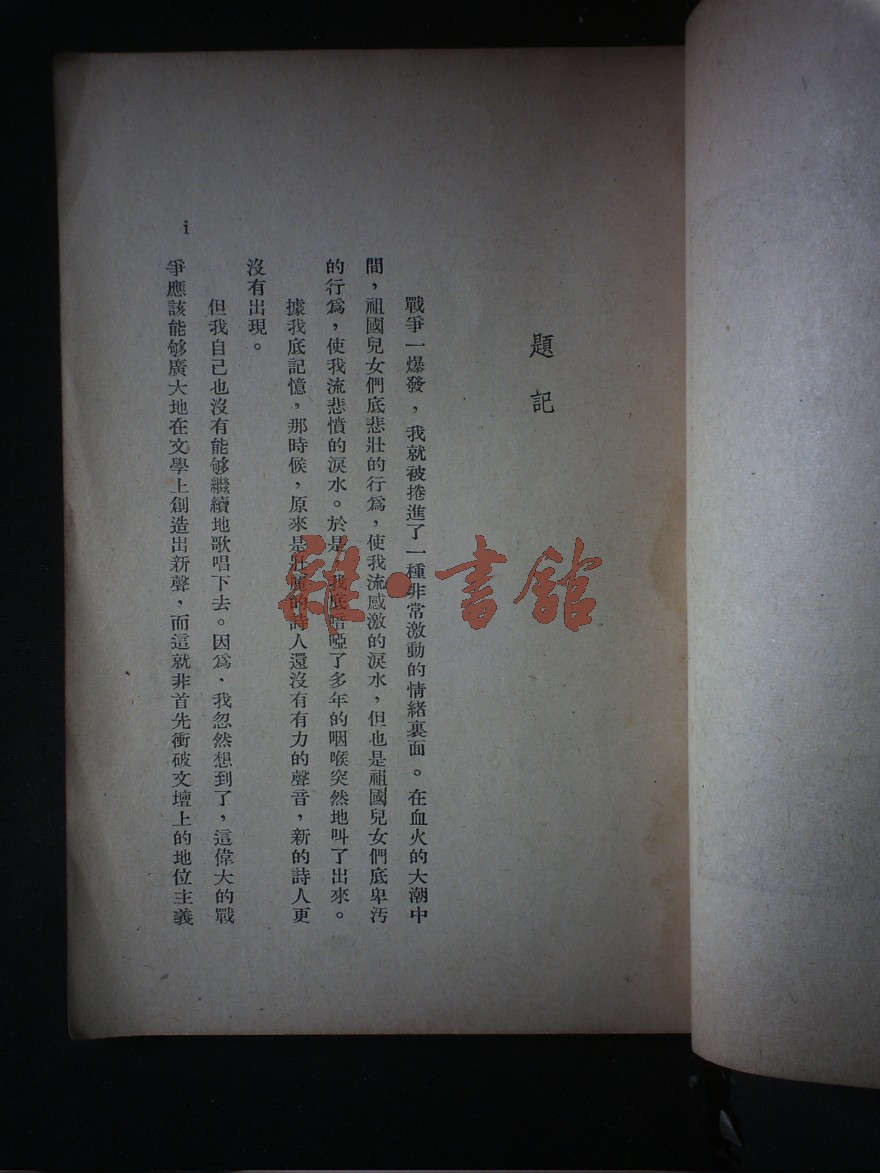 題記
戰爭一爆發，我就被捲進了一種非常激動的情緒裏面。在血火的大潮中
間，祖國兒女們底悲壯的行爲，使我流感激的淚水，但也是祖國兒女們底卑汚
的行爲，使我流悲憤的淚水。於是，我底喑啞了多年的咽喉突然地叫了出來。
據我底記憶，那時候，原來是壯麗的詩人還沒有有力的聲音，新的詩人更
沒有出現。
但我自己也沒有能够繼續地歌唱下去。因爲，我忽然想到了，這偉大的戰
爭應該能够廣大地在文學上創造出新聲，而這就非首先衝破文壇上的地位主義
i
雜·書館